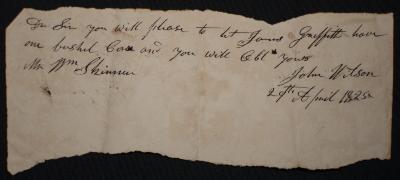 Dr Sir you will please to let Jones Griffitt have
one bushel Corn and you will Obl^e yours
Mr Wm Skinner John Wilson
29th April 1825